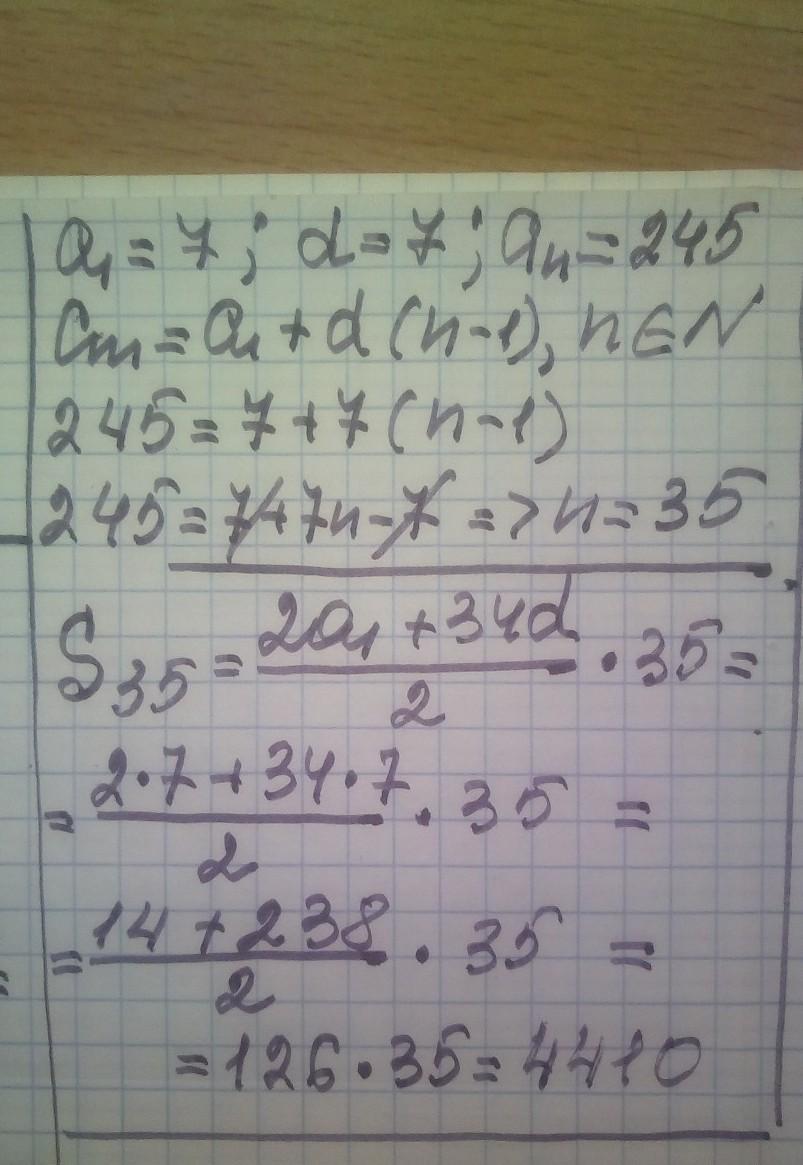 a₁ = 7; d = 7; aₙ = 245
aₙ = a₁ + d (n-1), n ∈ N
245 = 7 + 7 (n-1)
245 = 7 + 7n - 7 => n = 35
S₃₅ = (2a₁ + 34d)/2 · 35 =
= (2·7 + 34·7)/2 · 35 =
= (14 + 238)/2 · 35 =
= 126 · 35 = 4410